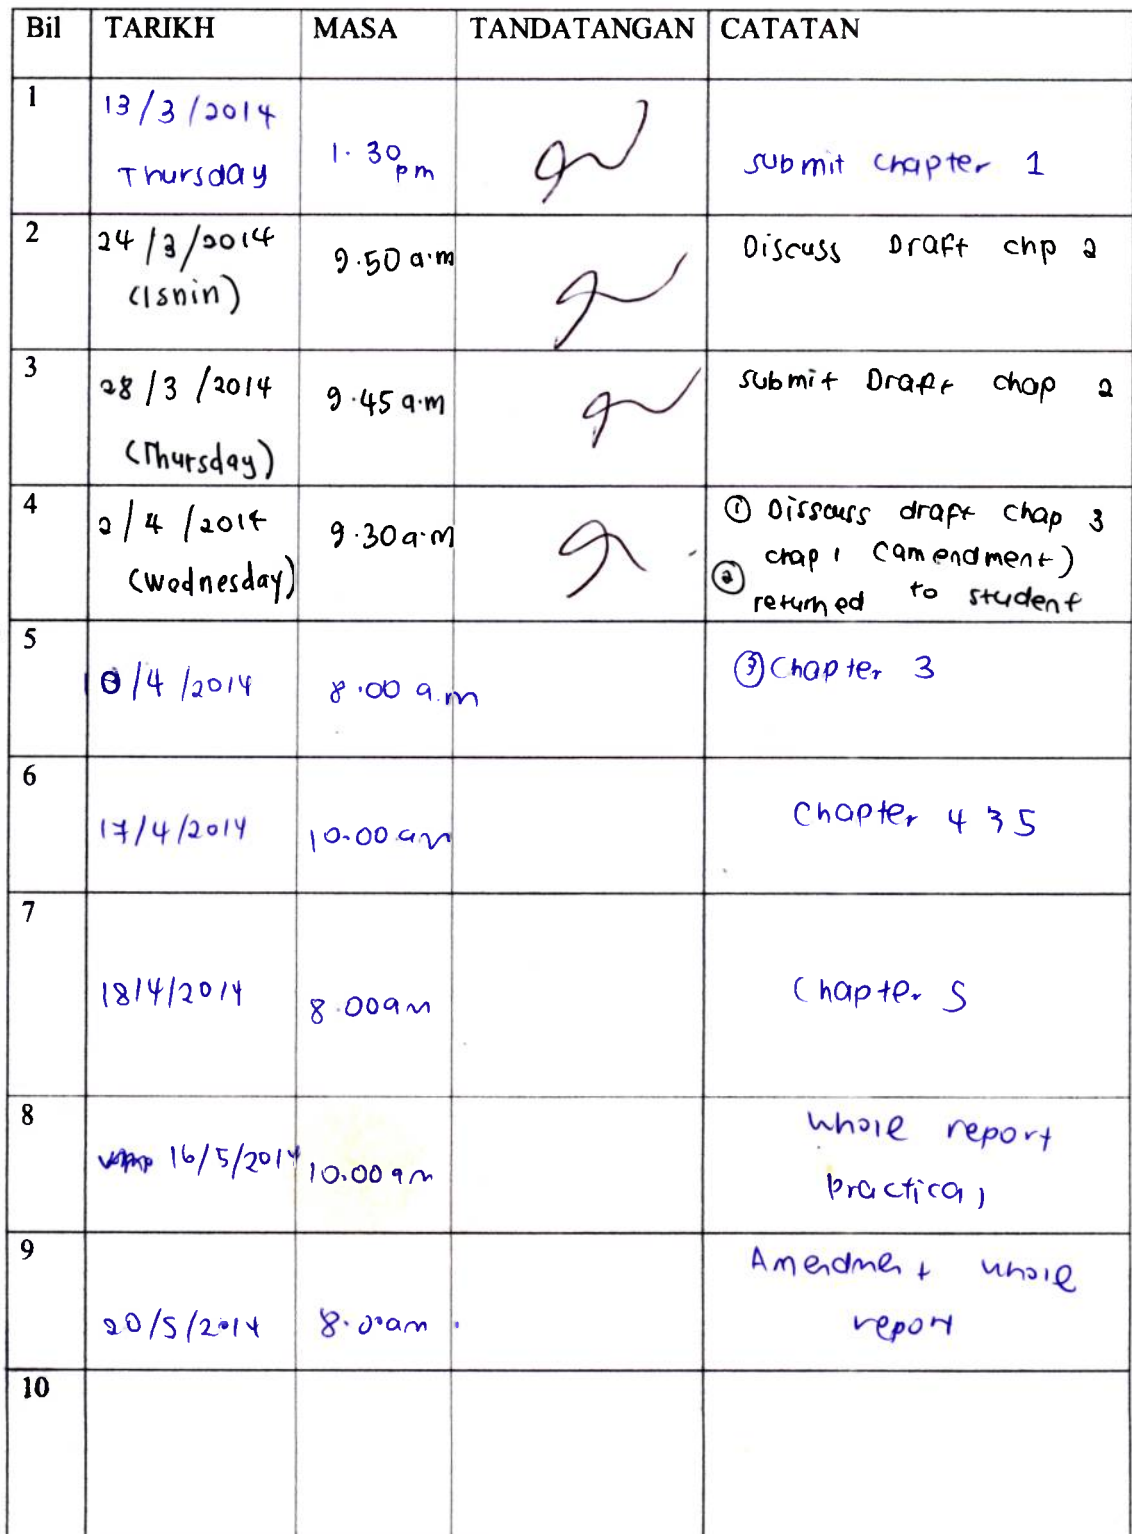 Bil TARIKH MASA TANDATANGAN CATATAN
1
13/3/2014
Thursday
1.30
pm
submit chapter 1
2
24/3/2014
(Isnin)
9.50 a.m
Discuss Draft chp 2
3
28/3/2014
(Thursday)
9.45 a.m
submit Draft chap 2
4
2/4/2014
(Wednesday)
9.30 a.m
① Disscuss draft chap 3
chap 1 (amendment)
②
returned to student
5
/4/2014
8.00 a.m
③ Chapter 3
6
17/4/2014
10.00 am
Chapter 4 & 5
7
18/4/2014
8.00am
Chapter 5
8
16/5/2014
10.00 am
whole report
practical
9
20/5/2014
8.00am
Amendment whole
report
10